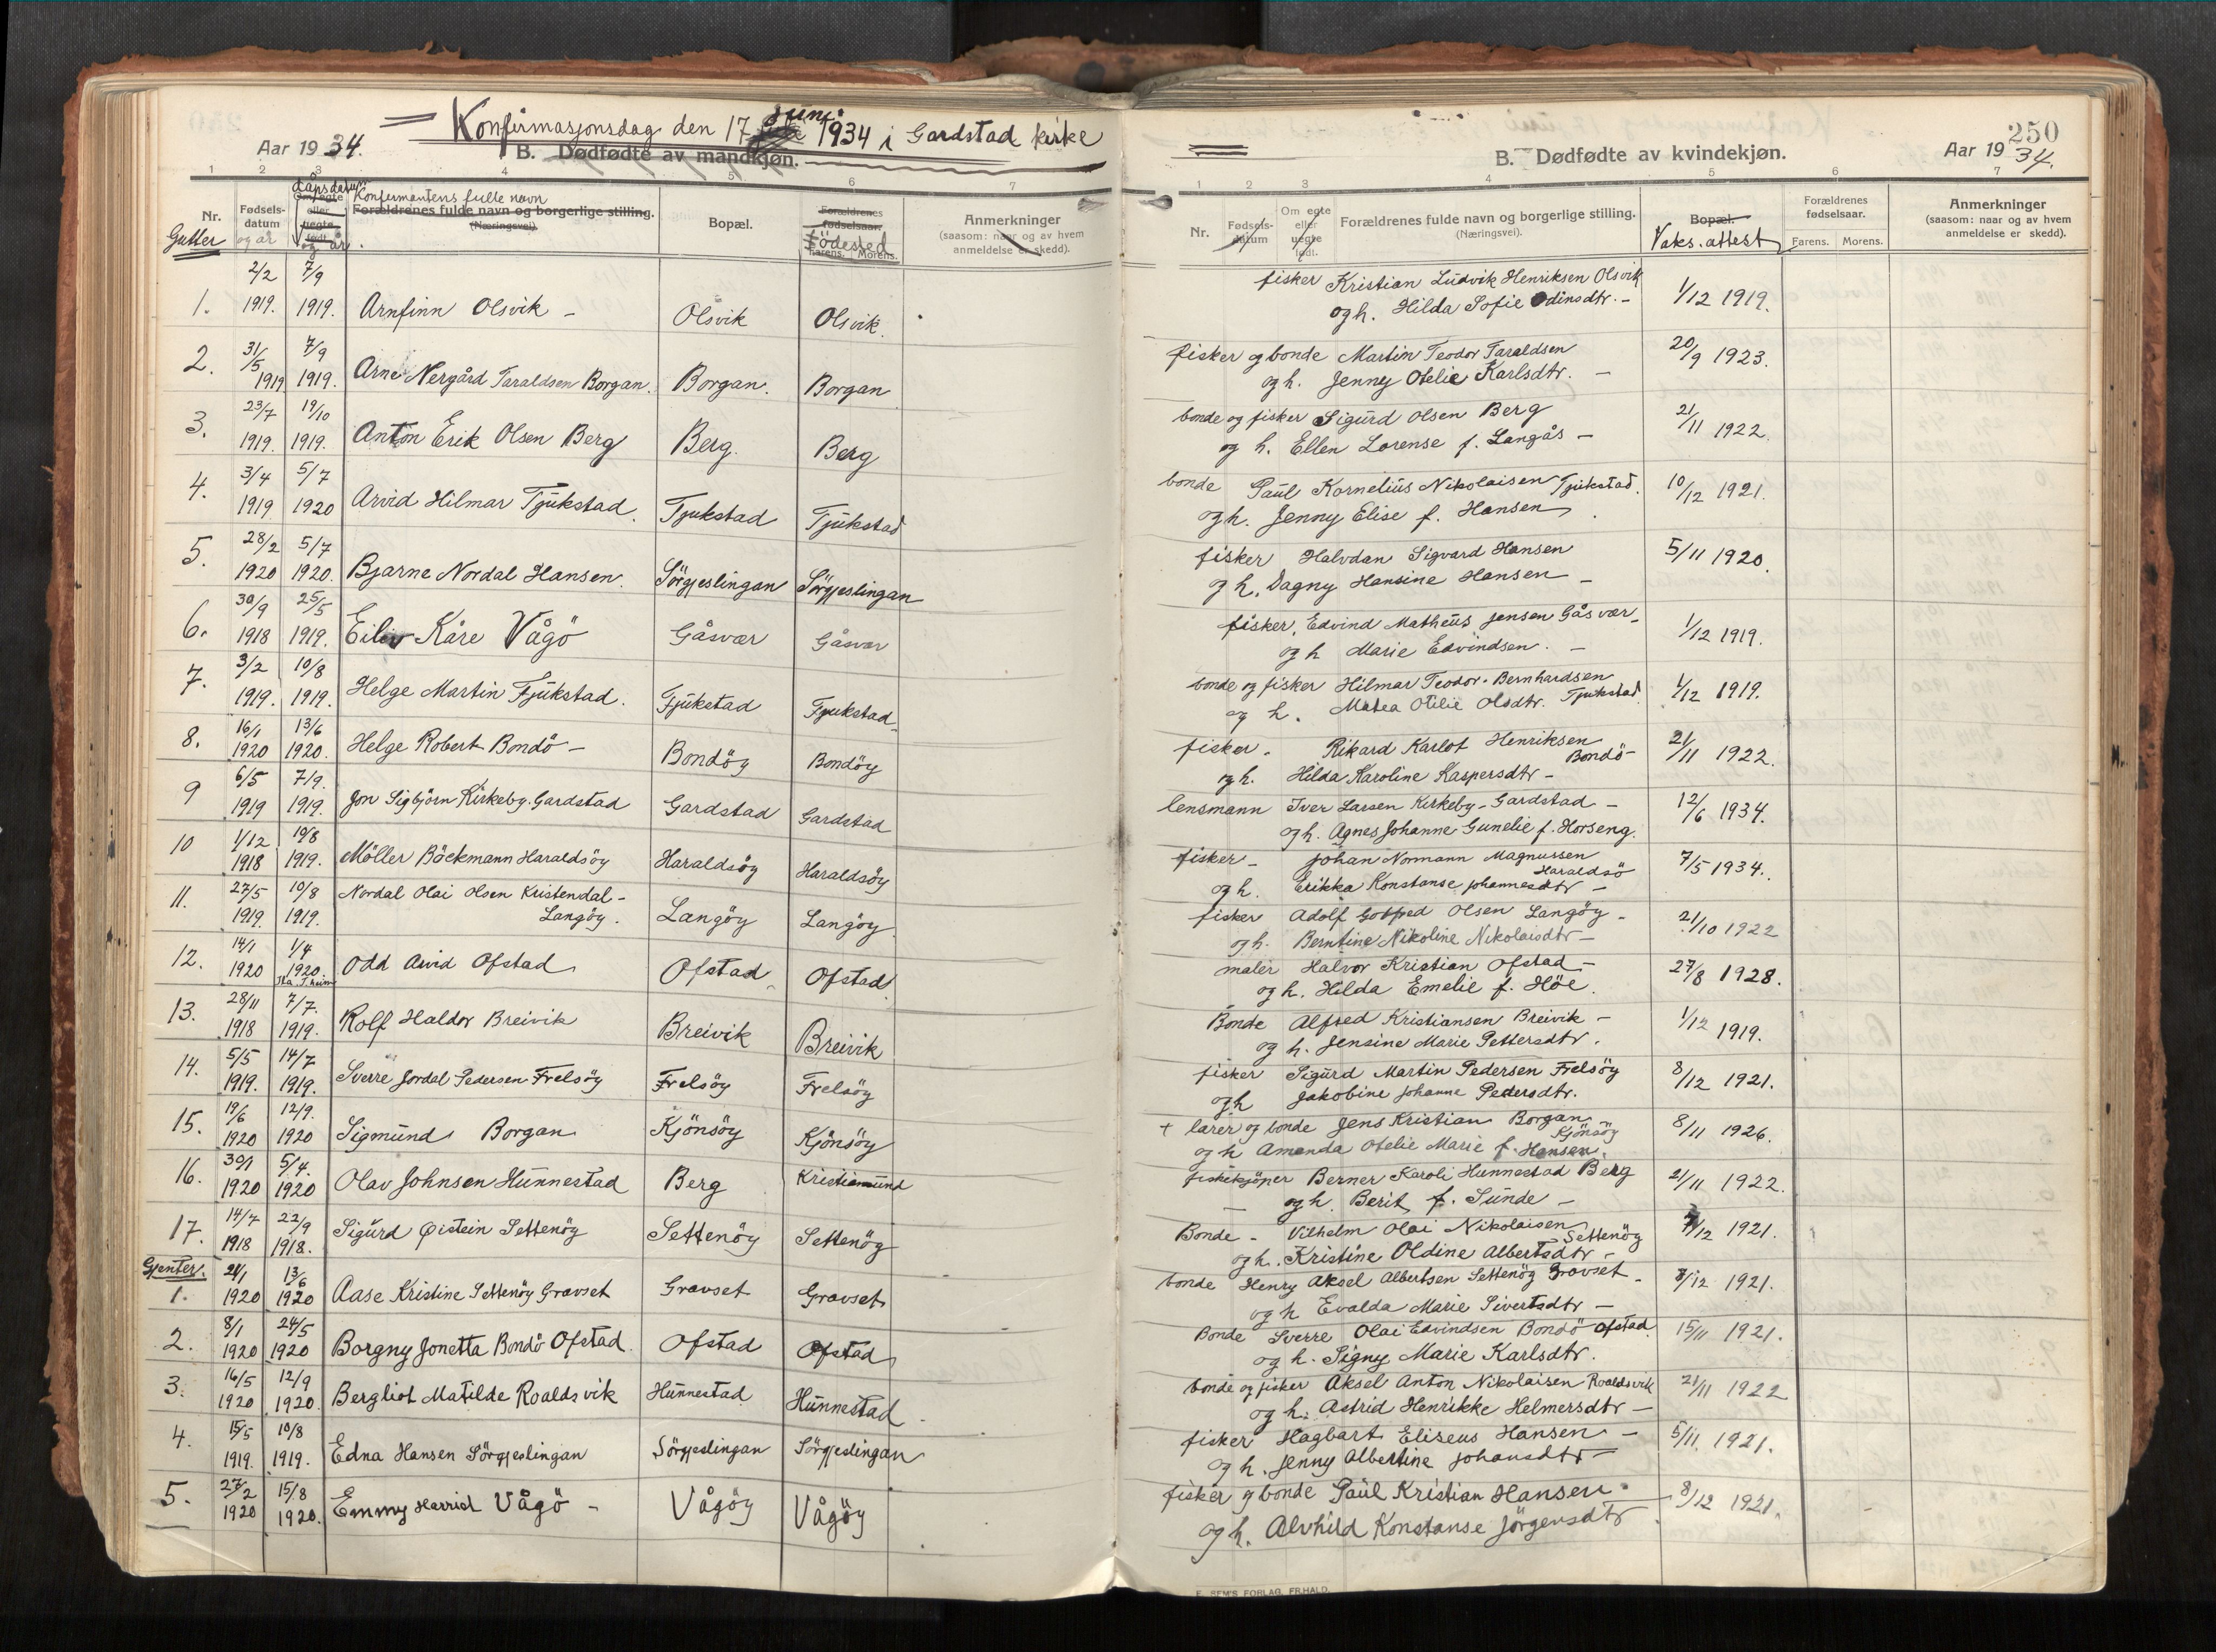 Konfirmasjonsdag den 17 juni 1934 i Gardstad kirke
Aar 1934.
B. Dødfødte av mandkjøn.
1 2 3 4 5 6 7
Nr.
Gutter
Fødsels-
datum
og år
dåpsdatum
Om egte
eller
uegte
født.
og år.
Konfirmantens fulle navn
Forældrenes fulde navn og borgerlige stilling.
(Næringsvei).
Bopæl.
Forældrenes
fødselsaar.
Födested
Farens. Morens.
Anmerkninger
(saasom: naar og av hvem
anmeldelse er skedd).
1. 2/2 1919. 7/9 1919. Arnfinn Olsvik – Olsvik Olsvik.
2. 31/5 1919 7/9 1919. Arne Nergård Taraldsen Borgan. Borgan. Borgan
3. 23/7 1919. 19/10 1919. Anton Erik Olsen Berg Berg. Berg
4. 3/4 1919 5/7 1920 Arvid Hilmar Tjukstad. Tjukstad Tjukstad
5. 28/2 1920 5/7 1920. Bjarne Nordal Hansen. Sörgjeslingan Sörgjeslingan
6. 30/9 1918 25/5 1919. Eiliv Kåre Vågö Gåsvær Gåsvær
7. 3/2 1919. 10/8 1919. Helge Martin Tjukstad. Tjukstad Tjukstad
8. 16/1 1920 13/6 1920. Helge Robert Bondö – Bondöy Bondöy
9 6/5 1919 7/9. 1919. Jon Sigbjörn Kirkeby-Gardstad Gardstad Gardstad
10 1/12 1918 10/8 1919. Möller Böckmann Haraldsöy Haraldsöy Haraldsöy
11. 27/5 1919. 10/8 1919. Nordal Olai Olsen Kristendal-
Langöy. Langöy Langöy
12. 14/1 1920 1/4 1920. Odd Arvid Ofstad Ofstad Ofstad
13. 28/11 1918 7/7. 1919. Rolf Haldor Breivik Breivik Breivik
14. 5/5 1919. 14/7 1919. Sverre Jordal Pedersen Frelsöy Frelsöy Frelsöy
15. 19/6 1920 12/9. 1920 Sigmund Borgan Kjönsöy Kjönsöy
16. 30/1 1920 5/4. 1920 Olav Johnsen Hunnestad Berg Kristiansund
17. 14/7 1918 22/9 1918. Sigurd Øistein Settenöy Settenöy Settenöy
Gjenter.
1. 24/1 1920 13/6 1920 Aase Kristine Settenöy Gravset Gravset Gravset
2. 8/1 1920 24/5 1920 Borgny Jonetta Bondö Ofstad. Ofstad Ofstad
3. 16/5 1920 12/9 1920. Bergliot Matilde Roaldsvik Hunnestad Hunnestad
4. 15/5 1919. 10/8 1919. Edna Hansen Sörgjeslingan Sörgjeslingan Sörgjeslingan
5. 27/2 1920 15/8 1920. Emmy Harrid Vågö – Vågöy Vågöy
250
B. Dødfødte av kvindekjøn.
Aar 1934.
1 2 3 4 5 6 7
Nr.
Fødsels-
datum
Om egte
eller
uegte
født.
Forældrenes fulde navn og borgerlige stilling.
(Næringsvei).
Bopæl.
Vaks. attest
Forældrenes
fødselsaar.
Farens. Morens.
Anmerkninger
(saasom: naar og av hvem
anmeldelse er skedd).
fisker Kristian Ludvik Henriksen Olsvik
og h. Hilda Sofie Odinsdtr. – 1/12 1919.
fisker og bonde Martin Teodor Taraldsen 20/9 1923.
og h. Jenny Otelie Karlsdtr. –
bonde og fisker Sigurd Olsen Berg 21/11 1922.
og h. Ellen Lorense f. Langås –
bonde Paul Kornelius Nikolaisen Tjukstad. 10/12 1921.
og h. Jenny Elise f. Hansen
fisker Halvdan Sigvard Hansen 5/11 1920.
og h. Dagny Hansine Hansen –
fisker. Edvind Matheus Jensen Gåsvær – 1/12 1919.
og h Marie Edvindsen. –
bonde og fisker Hilmar Teodor Bernhardsen 1/12 1919.
og h. Matea Otilie Olsdtr. Tjukstad
fisker. Rikard Karlot Henriksen 21/11 1922.
Bondö –
og h. Hilda Karoline Kaspersdtr –
lensmann Iver Larsen Kirkeby-Gardstad – 12/6 1934.
og h. Agnes Johanne Gunelie f. Horseng.
fisker – Johan Normann Magnussen 7/5 1934.
Haraldsö
og h. Erikka Konstanse Johannesdtr –
fisker Adolf Gotfred Olsen Langöy – 21/10 1922
og h. Berntine Nikoline Nikolaisdtr –
maler Halvor Kristian Ofstad – 27/8 1928.
og h. Hilda Emelie f. Höe.
Bonde Alfred Kristiansen Breivik – 1/12 1919.
og h. Jensine Marie Pettersdtr.
fisker Sigurd Martin Pedersen Frelsöy 8/12 1921.
og h Jakobine Johanne Pedersdtr.
+ lærer og bonde Jens Kristian Borgan 8/11 1926.
Kjönsöy
og h Amanda Otelie Marie f. Hansen.
fiskekjöper Berner Karoli Hunnestad Berg 21/11 1922.
– og h. Berit f. Sunde –
Bonde – Vilhelm Olai Nikolaisen 7/12 1921.
Settenöy
og h. Kristine Oldine Albertsdtr –
bonde Henry Aksel Albertsen Settenöy Gravset – 8/12 1921.
og h Evalda Marie Sivertsdtr –
Bonde Sverre Olai Edvindsen Bondö Ofstad. 15/11 1921.
og h. Signy Marie Karlsdtr.
bonde og fisker Aksel Anton Nikolaisen Roaldsvik 21/11 1922
og h. Astrid Henrikke Helmersdtr –
fisker Hagbart Eliseus Hansen – 5/11 1921.
og h. Jenny Albertine Johansdtr –
fisker og bonde Paul Kristian Hansen. 8/12 1921.
og h. Alvhild Konstanse Jörgensdtr
E. SEM'S FORLAG, FR.HALD.